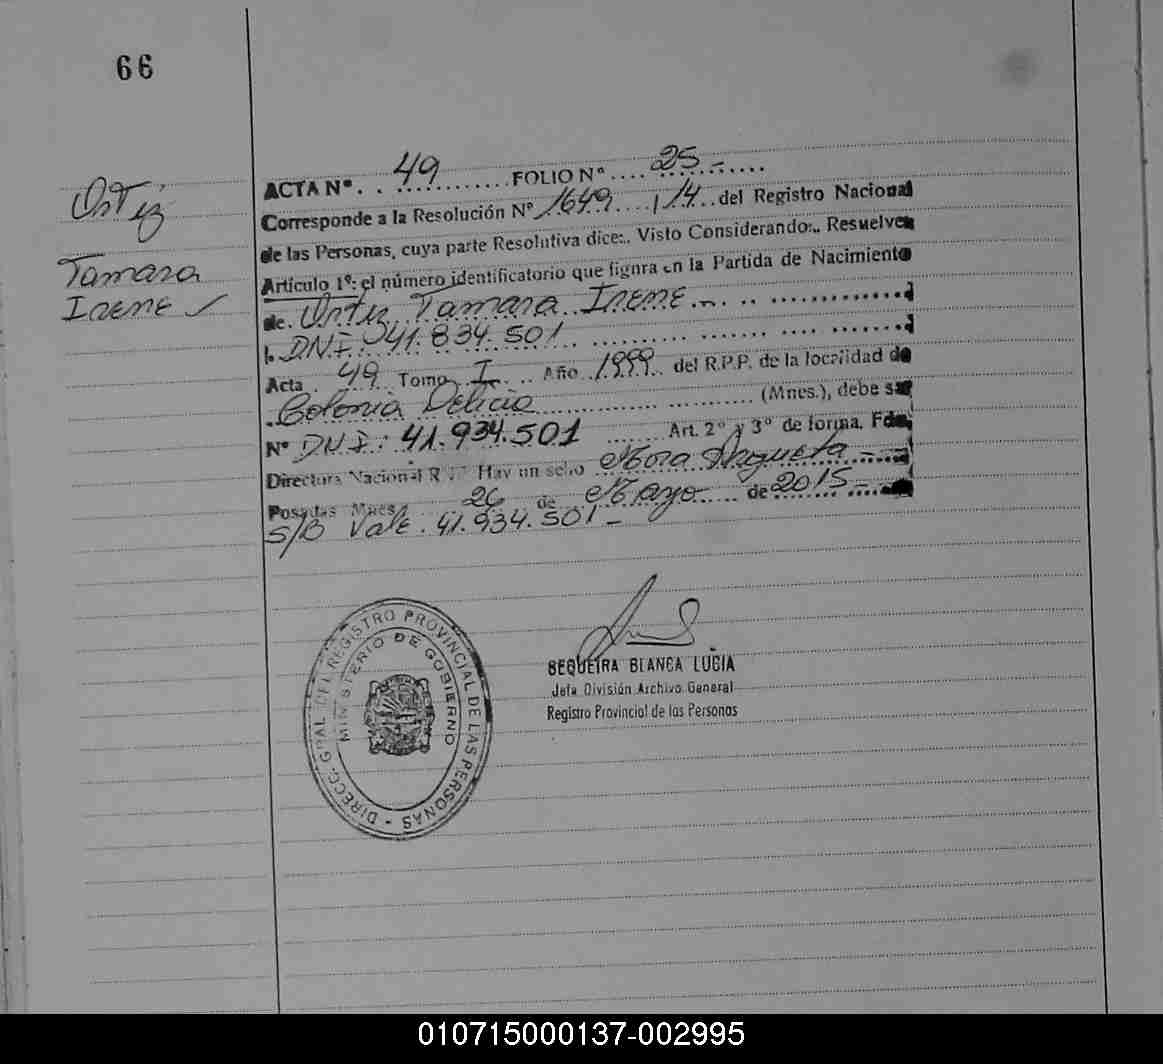 66
Ortiz
Tamara
Irene
ACTA Nº. . 49 ............ FOLIO Nº .... 25.- .......
Corresponde a la Resolución Nº 1649 .... / 14 .. del Registro Nacional
de las Personas, cuya parte Resolutiva dice:. Visto Considerando:.. Resuelve:
Artículo 1º: el número identificatorio que figura en la Partida de Nacimiento
de. Ortiz Tamara Irene
DNI: 41.834.501
Acta . 49 Tomo I ... Año 1999 .. del R.P.P. de la localidad de
Colonia Delicia ............ (Mnes.), debe ser
Nº DNI: 41.934.501 ....... Art. 2º y 3º de forma. Fdo.
Directora Nacional Hay un sello Nora
Posadas Mnes 26 de Mayo ..... de 2015-
S/B Vale. 41.934.501-
DIRECC. GRAL. DEL REGISTRO PROVINCIAL DE LAS PERSONAS -
MINISTERIO DE GOBIERNO
SEQUEIRA BLANCA LUCIA
Jefa División Archivo General
Registro Provincial de las Personas
010715000137-002995